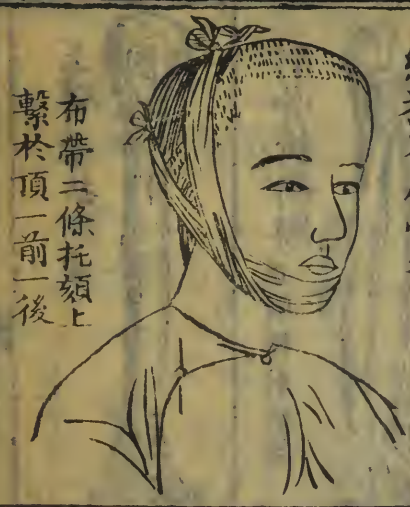 布帶二條托頦上
繫於頂一前一後